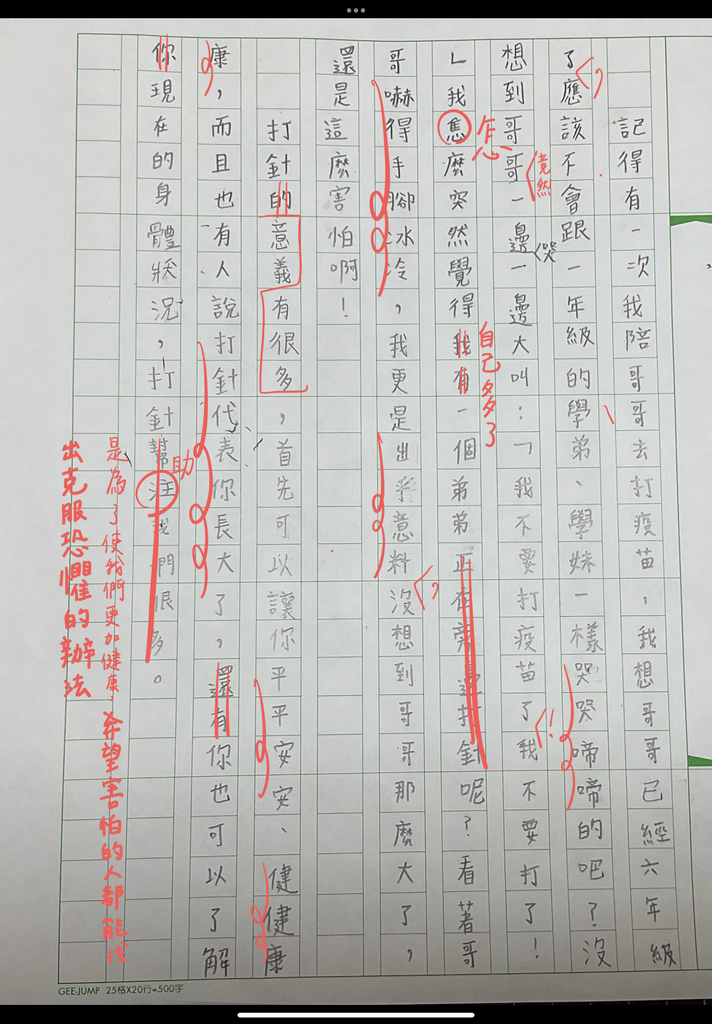 記得有一次我陪哥哥去打疫苗，我想哥哥已經六年級
了應該不會跟一年級的學弟、學妹一樣哭哭啼啼的吧？沒
，
想到哥哥一邊一邊大叫：「我不要打疫苗了我不要打了！
竟然
哭
！
」我惪麼突然覺得我有一個弟弟正在旁邊打針呢？看著哥
怎
自己多了
哥嚇得手腳冰冷，我更是出乎意料沒想到哥哥那麼大了，
，
還是這麼害怕啊！
打針的意義有很多，首先可以讓你平平安安、健健康
康，而且也有人說打針代表你長大了，還有你也可以了解
你現在的身體狀況，打針幫注我們很多。
助
是為了使我們更加健康，希望害怕的人都能找
出克服恐懼的辦法
GEE-JUMP 25格X20行=500字